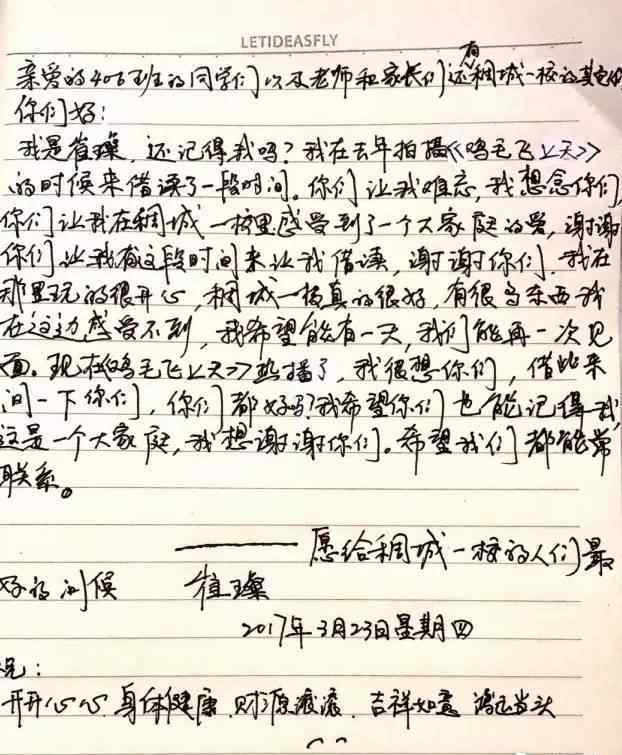 LETIDEASFLY
有
亲爱的406班的同学们以及老师和家长们还稠城一校的其它的
你们好:
我是崔璨,还记得我吗?我在去年拍摄《鸡毛飞上天》
的时候来借读了一段时间。你们让我难忘,我想念你们,
你们让我在稠城一校里感受到了一个大家庭的爱,谢谢
你们让我有这段时间来让我借读,谢谢你们.我在
那里玩的很开心,稠城一校真的很好,有很多东西我
在这边感受不到,我希望能有一天,我们能再一次见
面。现在《鸡毛飞上天》热播了,我很想你们,借此来
问一下你们,你们都好吗?我希望你们也能记得我,
这是一个大家庭,我想谢谢你们。希望我们都能常
联系。
——愿给稠城一校的人们最
好的问候 崔璨
2017年3月23日星期四
祝:
开开心心 身体健康.财源滚滚.吉祥如意 鸿运当头